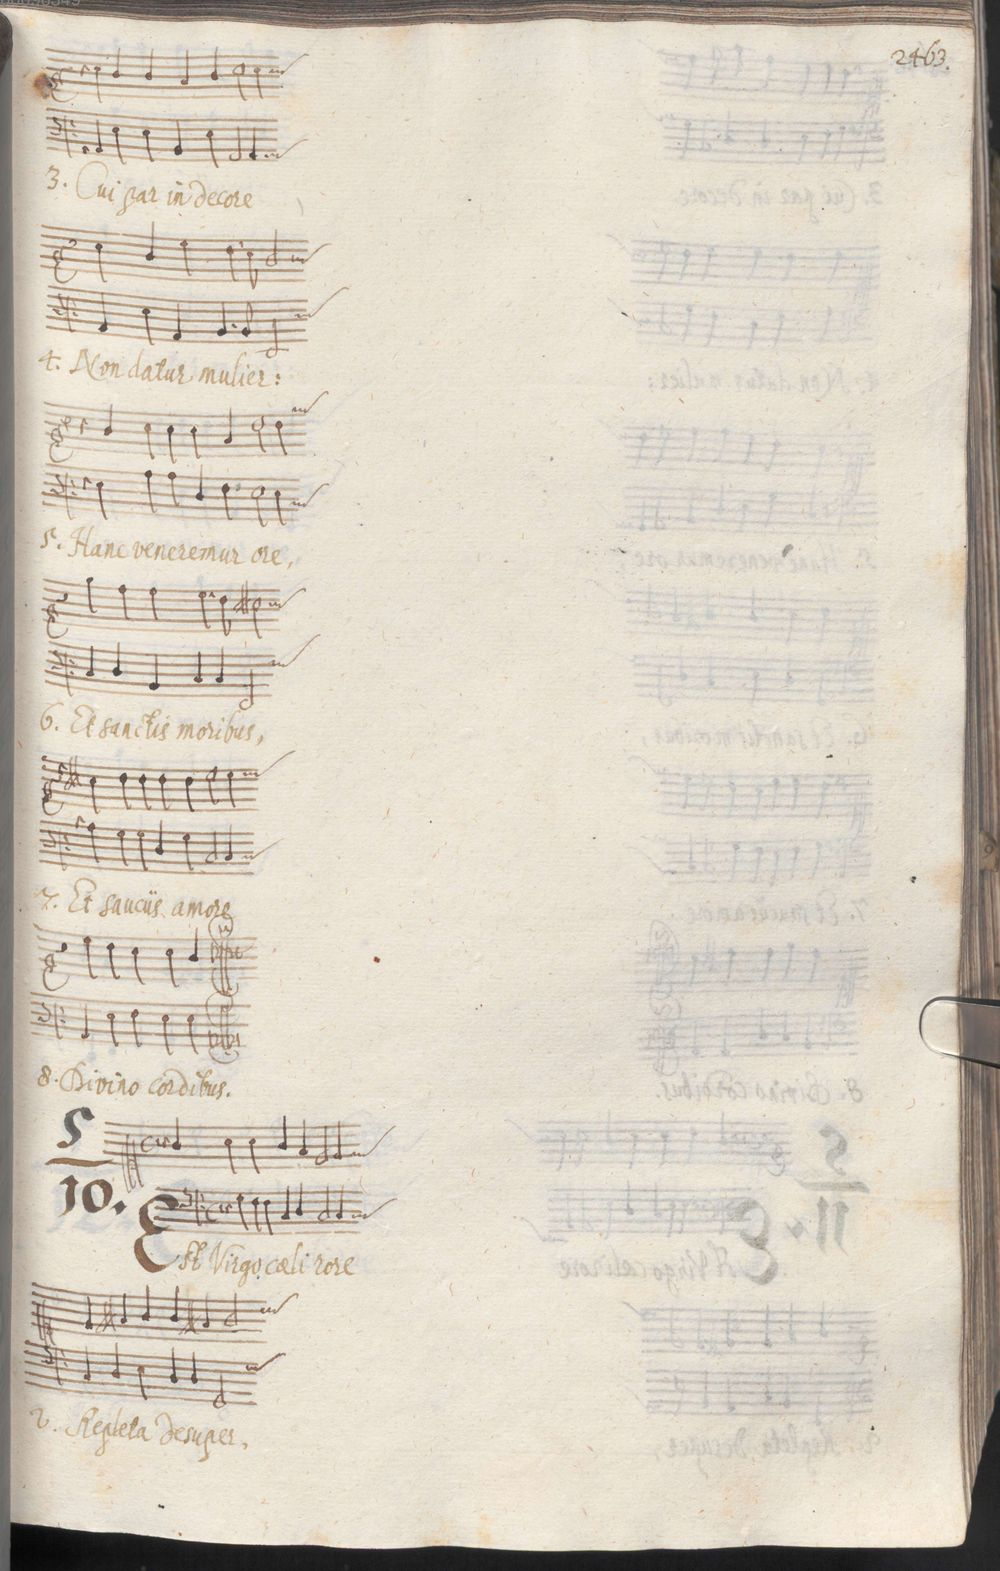 2463.
3. Cui par in decore
4. Non datur mulier:
5. Hanc veneremur ore,
6. Et sanctis moribus,
7. Et sauciis amore
8. Divino cordibus.
5
10.
Est Virgo cæli rore
2. Repleta desuper.